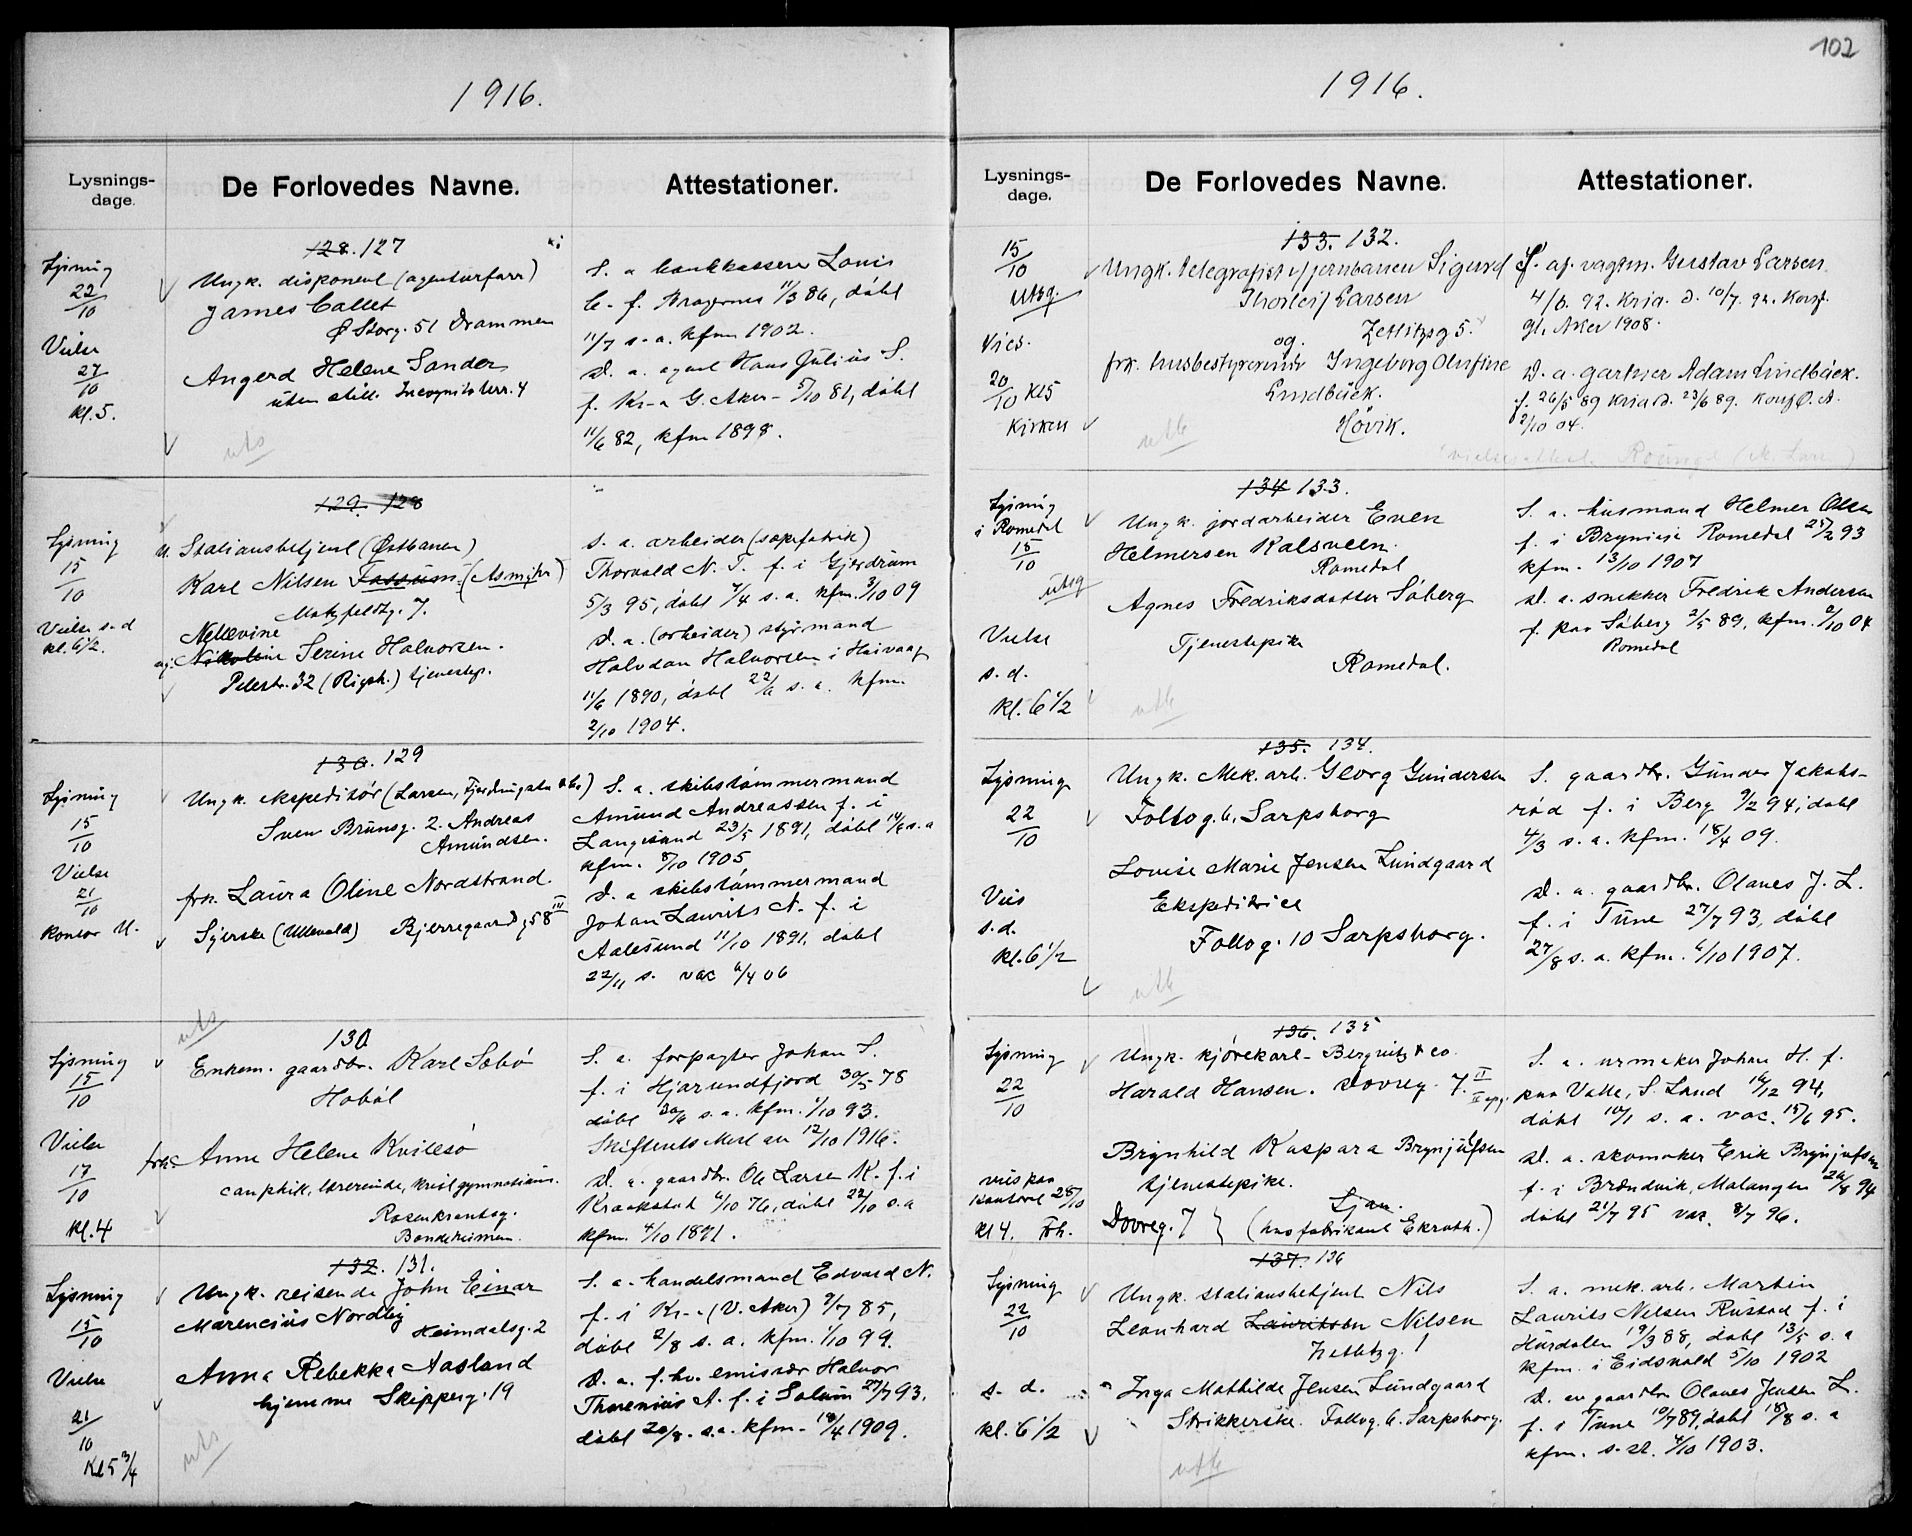 102
1916.
Lysnings-
dage.
De Forlovedes Navne.
Attestationer.
128. 127
Lysning
22/10
Vielse
27/10
kl. 5.
Ungk. disponent (agenturforr)
James Callet
Ø Storg. 51 Drammen
Angerd Helene Sander
uten still. Incognitoterr. 4
uts
S. a bankkasserer Louis
C. f. Bragernes 11/3 86, døbt
11/7 s. a. kfm 1902.
D. a. agent Hans Julius S.
f. Kr-a G. Aker - 5/10 81, døbt
11/6 82, kfm 1898.
129. 128
Lysning
15/10
Vielse s. d
kl. 6 1/2.
U. Stationsbetjent (Østbanen)
Karl Nilsen Fossum. (Asmyhr)
Motzfeldtg. 7.
Nellevine
og Nikoline Serine Halvorsen.
Pilestr. 32 (Rigsh.) tjenestep.
S. a. arbeider (sæpefabrik)
Thorvald N. F. f. i Gjerdrum
5/3 95, døbt 7/4 s. a. kfm. 3/10 09
D. a. (arbeider) styrmand
Halvdan Halvorsen i Høivaag
11/6 1890, døbt 22/6 s. a. kfm.
2/10 1904.
130. 129
Lysning
15/10
Vielse
21/10
kontor U.
Ungk. ekspeditør (Larsen,
Sven Brunsg. 2. Andreas
Amundsen.
frk. Laura Oline Nordstrand
Syerske (Ullevold) Bjerregaardg 58 III
S. a. skibstømmermand
Amund Andreassen f. i
Langesund 23/5 1891, døbt 14/6 s. a
kfm. 8/10 1905
D. a skibstømmermand
Johan Laurits N. f. i
Aalesund 11/10 1891, døbt
22/11 s. vac 6/4 06
uts
130
Lysning
15/10
Vielse
17/10
kl. 4
Enkem. gaardbr. Karl Sæbø
Hobøl
frk. Anne Helene Kvilesø
lærerinde, Krist gymnasium.
Rosenkrantsg.
Bondeheimen.
S. a. forpagter Johan S.
f. i Hjørundfjord 30/5 78
døbt 30/6 s. a. kfm. 1/10 93.
Skifterets Att. av 12/10 1916.
D. a. gaardbr. Ole Larsen K. f. i
Kraakstad 6/10 76, døbt 22/10 s. a
kfm. 4/10 1891.
132. 131.
Lysning
15/10
Vielse
21/10
Kl 5 3/4
Ungk. reisende John Einar
Marencius Nordby
Heimdalsg. 2
Anna Rebekka Aasland
hjemme Skipperg. 19
uts
S. a. handelsmand Edvard N.
f. i Kr.-a (V. Aker) 9/7 85,
døbt 2/8 s. a. kfm. 1/10 99.
D. a. f. hv. emissær Halvor
Thorenius A. f. i Solum 27/7 93.
døbt 20/8. s. a. kfm. 18/4 1909.
1916.
Lysnings-
dage.
De Forlovedes Navne.
Attestationer.
133. 132.
15/10
utsg.
Vies.
20/10 kl 5
Kirken
Ungk. telegrafist v/ jernbanen Sigurd
Thorleif Larsen
Zetlitzg 5.
og.
frk. husbestyrerinde Ingeborg Olufine
Lindbäck.
Høvik.
utb
S. af. vagtm. Gustav Larsen
4/6. 92. Kria. d. 10/7. 92. Konf.
gl. Aker 1908.
D. a. gartner Adam Lindbäck.
f. 26/5 89 Kria d. 23/6 89. Konf. Ø. A.
2/10 04.
134 133.
Lysning
i Romedal
15/10
utsg
Vielse
s. d.
kl. 6 1/2
Ungk. jordarbeider Even
Helmersen Kalsveen.
Romedal
Agnes Fredriksdatter Søberg
Tjenestepike
Romedal.
utb
S. a. husmand Helmer Olsen
f. i Romedal 25/2 93
kfm. 13/10 1907
D. a. snekker Fredrik Andersen
f. paa Søberg 3/5 89, kfm. 2/10 04
Romedal
135. 134.
Lysning
22/10
Vies
s. d.
kl. 6 1/2
Ungk. Mek. arb. Georg Gundersen
Follo g. 6, Sarpsborg
Lovise Marie Jensen Lundgaard
Ekspeditrice
Follog. 10 Sarpsborg.
utb
S. gaardbr. Gunder Jakobs-
rød f. i Berg 9/2 94, døbt
4/3 s. a. kfm. 18/4 09.
D. a. gaardbr. Olaves J. L.
f. i Tune 27/7 93, døbt
27/8 s. a. kfm. 6/10 1907.
136. 135
Lysning
22/10
vies paa
kontoret 28/10
kl 4. Fh.
Ungk. kjørekarl - Bergwitz & co.
Harald Hansen. Dovreg. 7. II
II opg.
Brynhild Kaspara Brynjulfsen
tjenestepike.
Ljan.
Dovreg. 7 } (hos fabrikant Ekroth.)
S. a. urmaker Johan H. f.
paa Valle, S. Land 16/12 94,
døbt 10/1 s. a. vac. 15/6 95.
D. a. skomaker Erik Brynjulfsen
f. i Brændvik, Malangen 20/8 94
døbt 21/7 95 vac. 8/7 96.
137. 136
Lysning
22/10
s. d.
kl. 6 1/2
Ungk. stationsbetjent Nils
Leonhard Lauritsen Nilsen
Zetlitzg. 1
Inga Mathilde Jensen Lundgaard
Strikkerske. Follog. 6. Sarpsborg.
utb
S. a. mek. arb. Martin
Laurits Nilsen Rustad f. i
Hurdalen 19/3 88, døbt 13/5 s. a
kfm. i Eidsvold 5/10 1902
D. av gaardbr Olaves Jensen L.
f. i Tune 10/7 89, døbt 18/8 s. a
kfm. s. st. 4/10 1903.